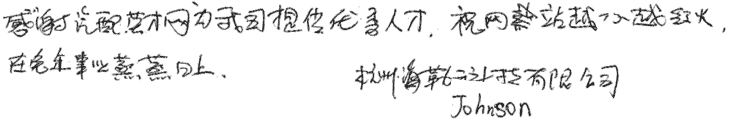 感谢汽配英才网为我司提供优秀人才，祝网站越办越红火，
在毛年事业蒸蒸日上。
杭州海勒科技有限公司
Johnson